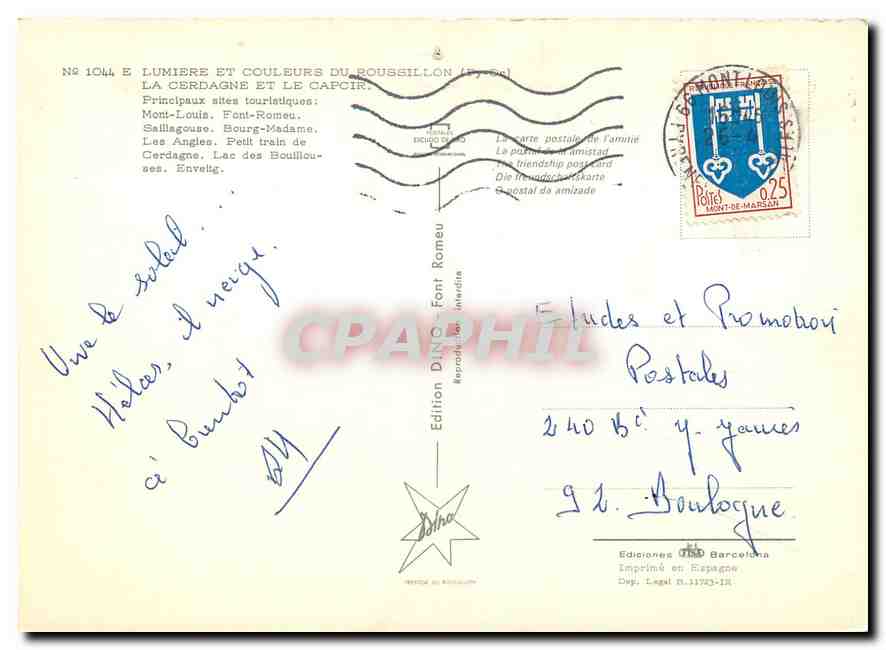 Nº 1044 E LUMIERE ET COULEURS DU ROUSSILLON (Py-Or)
LA CERDAGNE ET LE CAPCIR.
Principaux sites touristiques:
Mont-Louis. Font-Romeu.
Saillagouse. Bourg-Madame.
Les Angles. Petit train de
Cerdagne. Lac des Bouillou-
ses. Enveitg.
POSTALES
ESCUDO DE ORO
La carte postale de l'amitié
La postal de la amistad
The friendship post card
Die freundschaftskarte
O postal da amizade
REPUBLIQUE FRANÇAISE
POSTES
0,25
MONT-DE-MARSAN
66 MONT-LOUIS
Vive le soleil...
Hélas, il neige.
à bientôt
Edition DINO - Font Romeu
Reproduction interdite
CPAPHIL
Etudes et Promotion
Postales
240 Bd
92 Boulogne
Dino
Ediciones Barcelona
Imprimé en Espagne
Dep. Legal B.11723-IX